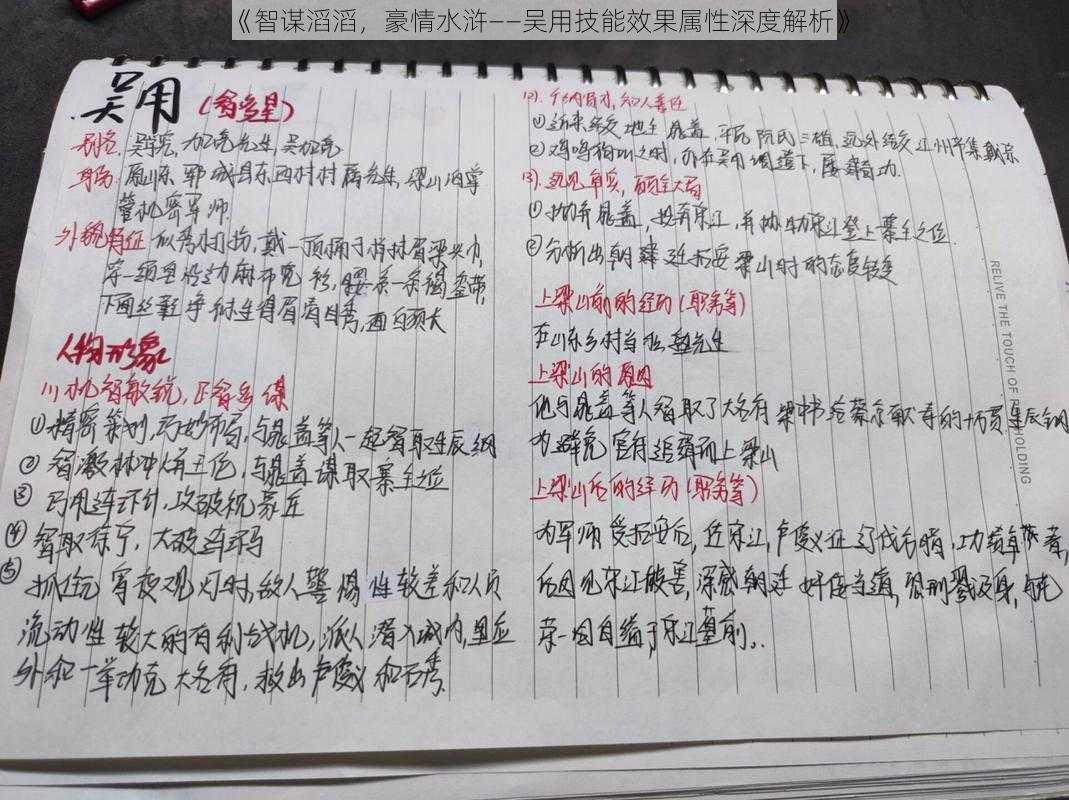 《智谋滔滔，豪情水浒——吴用技能效果属性深度解析》
吴用 (智多星)
别名 吴学究, 加亮先生, 吴加亮
身份 原山东郓城县东西村村 先生, 梁山泊掌
管机密军师.
外貌特征 似秀才打扮, 戴一顶桶子样抹眉梁头巾,
穿一领皂沿边麻布宽衫, 腰系一条 带,
下面丝鞋净袜生得眉清目秀, 面白须长
人物形象
(1) 机智敏锐, 足智多谋
①精密策划, 巧妙布局, 与晁盖等人一起智取生辰纲
② 智激林冲火并王伦, 与晁盖谋取寨主位
③ 巧用连环计, 攻破祝家庄
④ 智取徐宁, 大破连环马
⑤ 抓住元宵夜观灯时, 敌人警惕性较差和人员
流动性较大的有利战机, 派人潜入城内, 里应
外和一举功克大名府, 救出卢俊义和石秀.
(2). 知人善任
①近来结交地主晁盖, 平民阮氏三雄, 远外结交江州牢集戴宗
②鸡鸣狗 之时, 亦在吴用调遣下, 屡建奇功.
(3). 远见卓实, 顾全大局
① 抛弃晁盖, 投奔宋江, 并协助宋江登上寨主之位.
② 分析出朝 廷招安梁山时的态度转变
上梁山前的经历 (职务等)
在山东乡村当私塾先生
上梁山的原因
他与晁盖等人智取了大名府梁中书给蔡京献寿的十万贯生辰纲
为避免官府追缉而上梁山
上梁山后的经历 (职务等)
为军师 受招安后, 佐宋江, 卢俊义征辽伐方腊, 功绩卓著,
后因见宋江被害, 深感朝廷奸佞当道, 恐刑戮及身, 与花
荣一同自缢于宋江墓前.
RELIVE THE TOUCH OF
OLDING